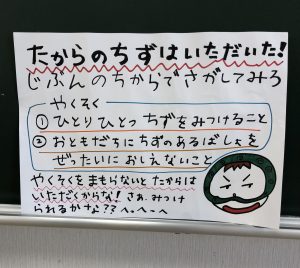 たからのちずはいただいた！
じぶんのちからでさがしてみろ
やくそく
① ひとりひとつちずをみつけること
② おともだちにちずのあるばしょを
ぜったいにおしえないこと
やくそくをまもらないとたからは
いただくからな！さぁ、みつけ
られるかな？？へっへーへ